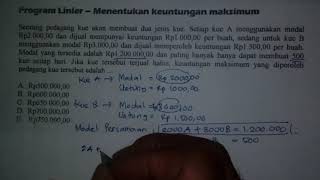 Program Linier – Menentukan keuntungan maksimum
Seorang pedagang kue akan membuat dua jenis kue. Setiap kue A menggunakan modal
Rp2.000,00 dan dijual mempunyai keuntungan Rp1.000,00 per buah, sedang untuk kue B
menggunakan modal Rp3.000,00 dan dijual memperoleh keuntungan Rp1.500,00 per buah.
Modal yang tersedia adalah Rp1.200.000,00 dan paling banyak hanya dapat membuat 500
kue setiap hari. Jika kue tersebut terjual habis, keuntungan maksimum yang diperoleh
pedagang kue tersebut adalah
A. Rp500.000,00
Kue A → Modal =
Untung = Rp 1000,00
Kue B → Modal =
Untung = Rp 1.500,00
Model Persamaan : 2000A + 3000B = 1.200.000
B = 500
2A